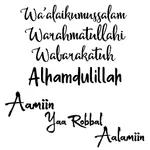 Wa'alaikumussalam
Warahmatullahi
Wabarakatuh
Alhamdulillah
Aamiin
Yaa Robbal
Aalamiin